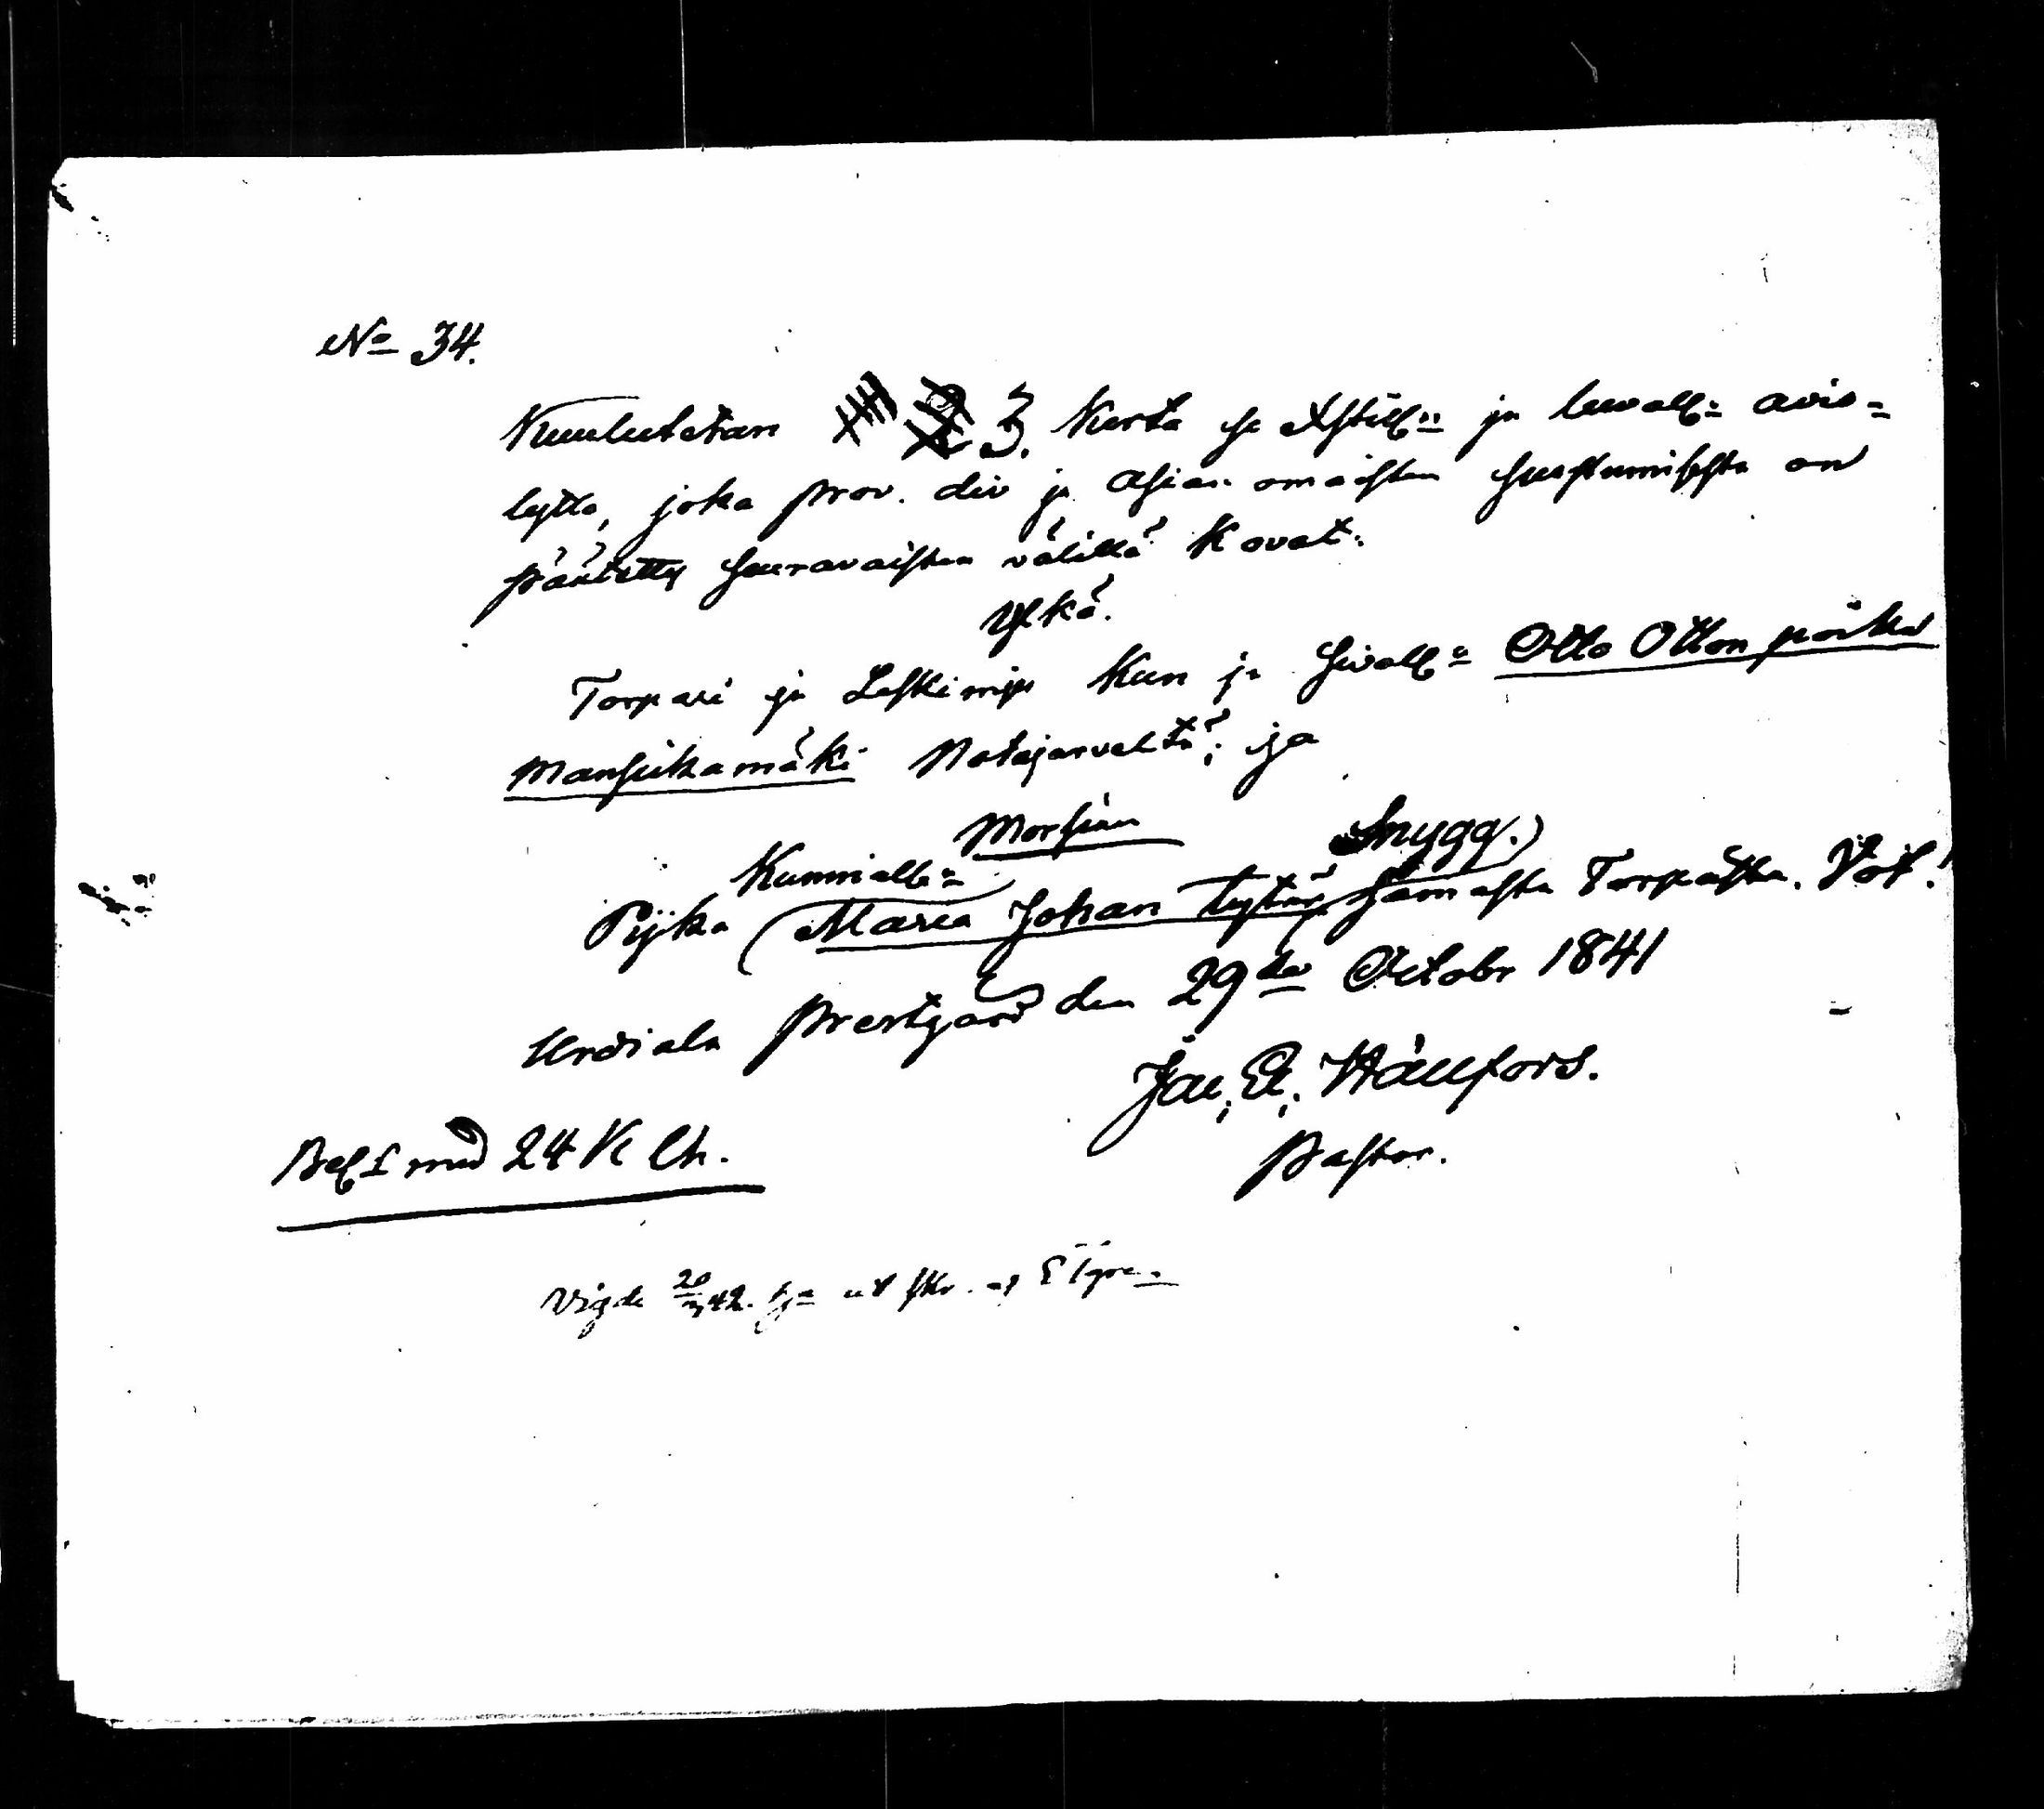 No 34.
Kuulutetan 3. Kerta se Christill: ja luvall: avio=
lytto, joka prov. div ja Asian omaisten suostumisesta on
päätetty seuravaisten välillä kovat:
Ylkä.
Torpari ja Leskimjes Kun ja Sivoll: Otto Otton poika
Mansikamäki Notsjärveltä; ja
Morsian
Kunniall: Snygg.)
Pijka (Maria Johan tytär Jamasta Torpasta. Vot.
Urdiala Prestgård den 29de Octobr 1841
Jac. E. Hällfors.
Pastor.
Bel:t med 24 K Ch.
Vigde 20/3 42. utskr. af